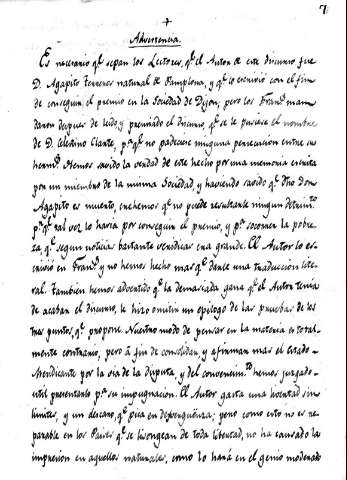 7
+
Advertencia.
Es necesario q.e sepan los Lectores, q.e el Autor de este discurso fue
D. Agapito Terreros natural de Pamplona, y q.e lo escrivió con el fin
de conseguir el premio en la Sociedad de Dijon; pero los Fran.s man-
daron despues de leido, y premiado el discurso, q.e se le pusiese el nombre
de D. Celestino Clante, p.a q.e no padeciese ninguna persecucion entre sus
herm.s Hemos savido la verdad de este hecho por una memoria escrita
por un miembro de la misma Sociedad, y haviendo savido q.e dho Don
Agapito es muerto, crehemos q.e no puede resultarle ningun detrim.to
p.r q.e tal vez lo haria por conseguir el premio, y p.a socorrer la pobre-
za, q.e segun noticias bastante veridicas era grande. El Autor lo es-
crivió en Fran.s y no hemos hecho mas q.e darle una traduccion lite-
ral. Tambien hemos advertido q.e la demasiada gana q.e el Autor tenia
de acabar el discurso, le hizo omitir un epilogo de las pruebas de los
tres puntos, q.e propone. Nuestro modo de pensar en la materia es total-
mente contrario, pero á fin de consolidar, y afirmar mas el estado
Mendicante por la via de la disputa, y del convencim.to hemos juzgado
util presentarlo p.a su impugnacion. El Autor gasta una livertad sin
limites, y un descaro, q.e pica en desverguënza; pero como esto no es re-
parable en los Paises q.e se lisongean de toda libertad, no ha causado la
impresion en aquellos naturales, como lo hará en el genio moderado